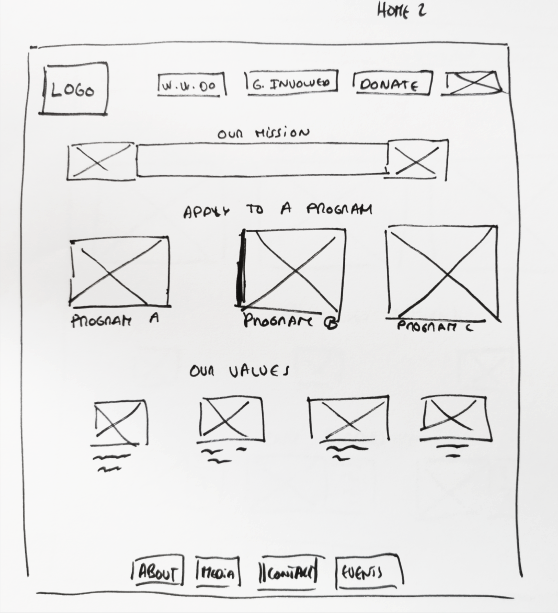 HOME 2
LOGO
W.W.DO
G. INVOLVED
DONATE
OUR MISSION
APPLY TO A PROGRAM
PROGRAM A
PROGRAM B
PROGRAM C
OUR VALUES
ABOUT
MEDIA
CONTACT
EVENTS